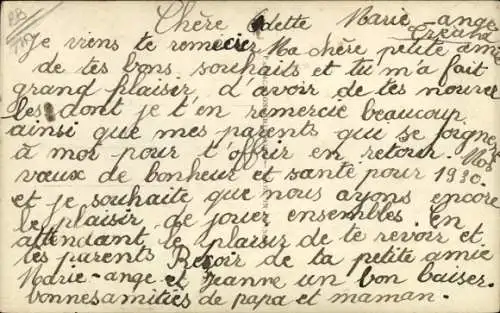 Chère Odette Marie-ange
Je viens te remecier Ma chère petite amie
de tes bons souhaits et tu m'a fait
grand plaisir, d'avoir de tes nouvel
les dont je t'en remercie beaucoup.
ainsi que mes parents qui se joigne
à moi pour t'offrir en retour. Nos
vœux de bonheur et santé pour 1930.
et je souhaite que nous ayons encore
le plaisir de jouer ensembles. En
attendant le plaisir de te revoir et
tes parents Reçoir de ta petite amie
Marie-ange et Jeanne un bon baiser.
bonnes amitiés de papa et maman.